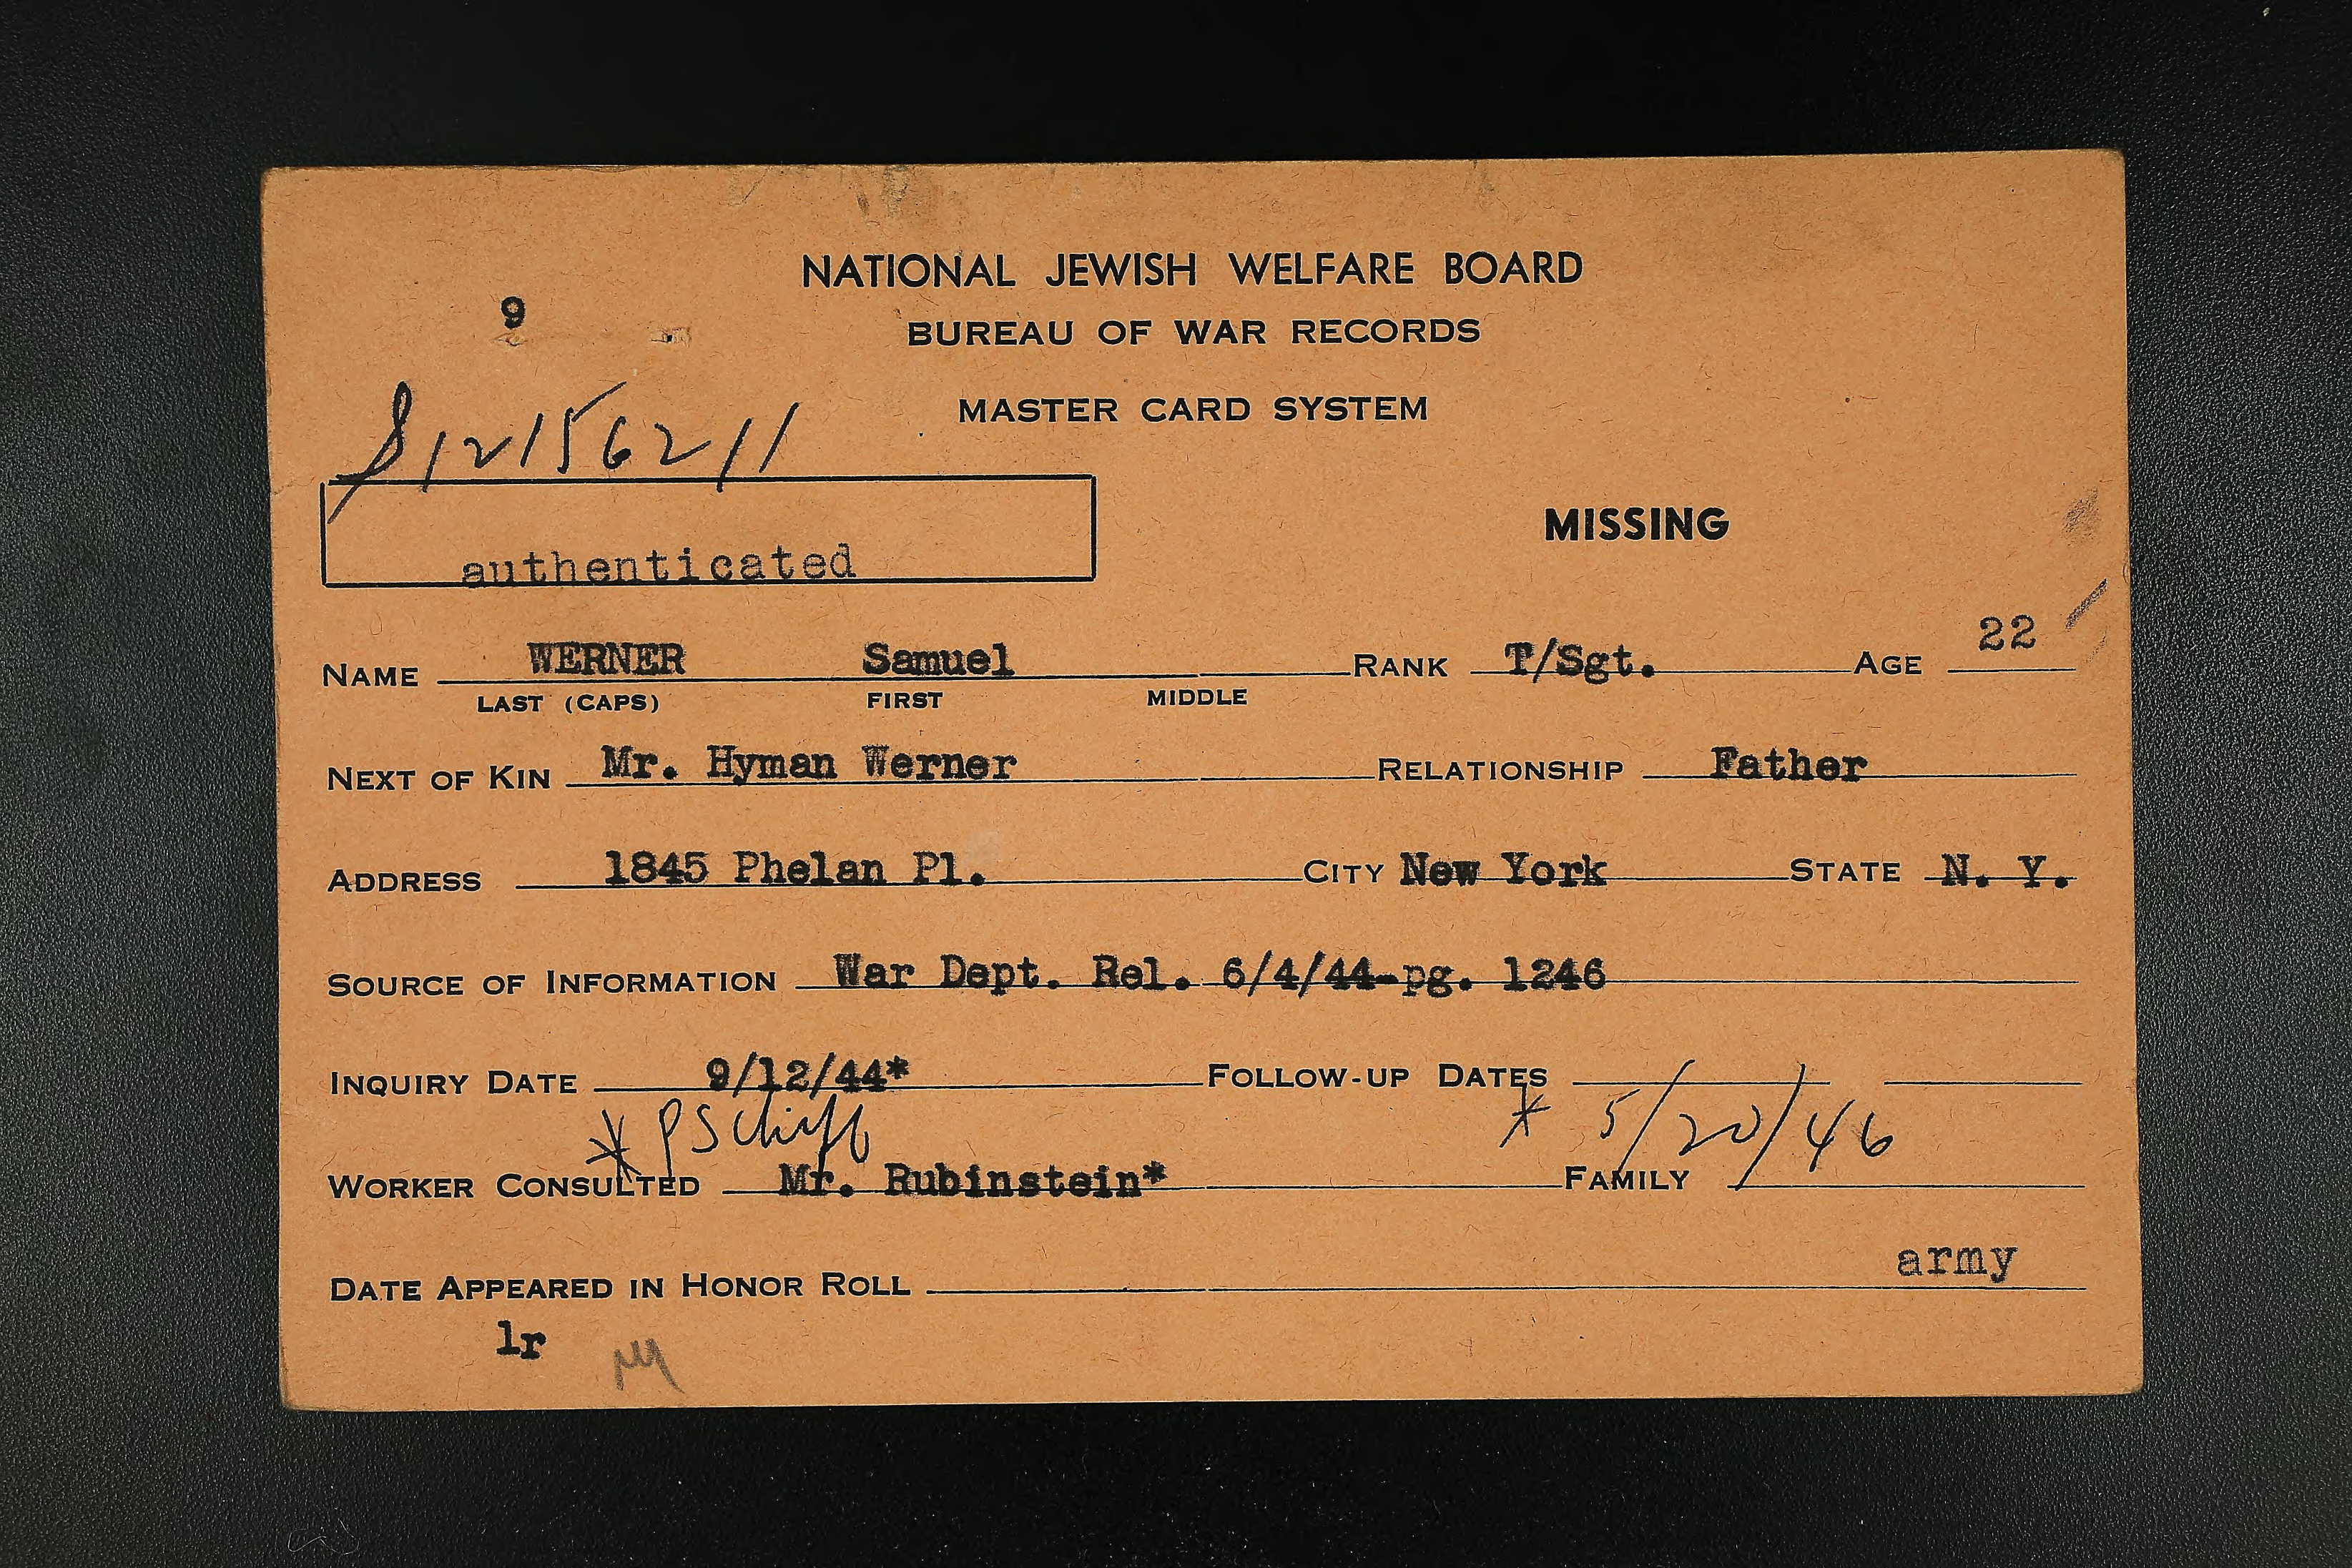 NATIONAL JEWISH WELFARE BOARD
9
BUREAU OF WAR RECORDS
MASTER CARD SYSTEM
12156211
MISSING
authenticated
NAME WERNER Samuel RANK T/Sgt. AGE 22
LAST (CAPS) FIRST MIDDLE
NEXT OF KIN Mr. Hyman Werner RELATIONSHIP Father
ADDRESS 1845 Phelan Pl. CITY New York STATE N. Y.
SOURCE OF INFORMATION War Dept. Rel. 6/4/44-pg. 1246
INQUIRY DATE 9/12/44* FOLLOW-UP DATES
* P Schiff * 5/20/46
WORKER CONSULTED Mr. Rubinstein* FAMILY
army
DATE APPEARED IN HONOR ROLL
lr